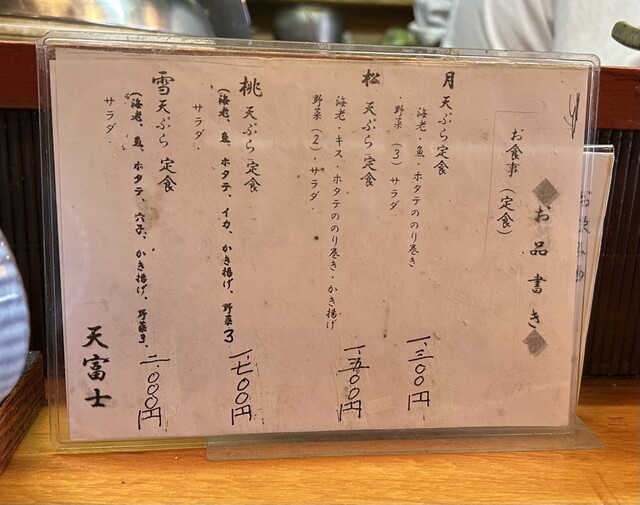 お品書き
お食事(定食)
月 天ぷら定食
海老・魚・ホタテののり巻き
野菜(3)・サラダ
一、三〇〇円
松 天ぷら定食
海老・キス・ホタテののり巻き・かき揚げ
野菜(2)・サラダ・
一、五〇〇円
桃 天ぷら定食
(海老、魚、ホタテ、イカ、かき揚げ、野菜3
サラダ・
一、七〇〇円
雪 天ぷら定食
(海老、魚、ホタテ、穴子、かき揚げ、野菜3、
サラダ・
二、〇〇〇円
天富士